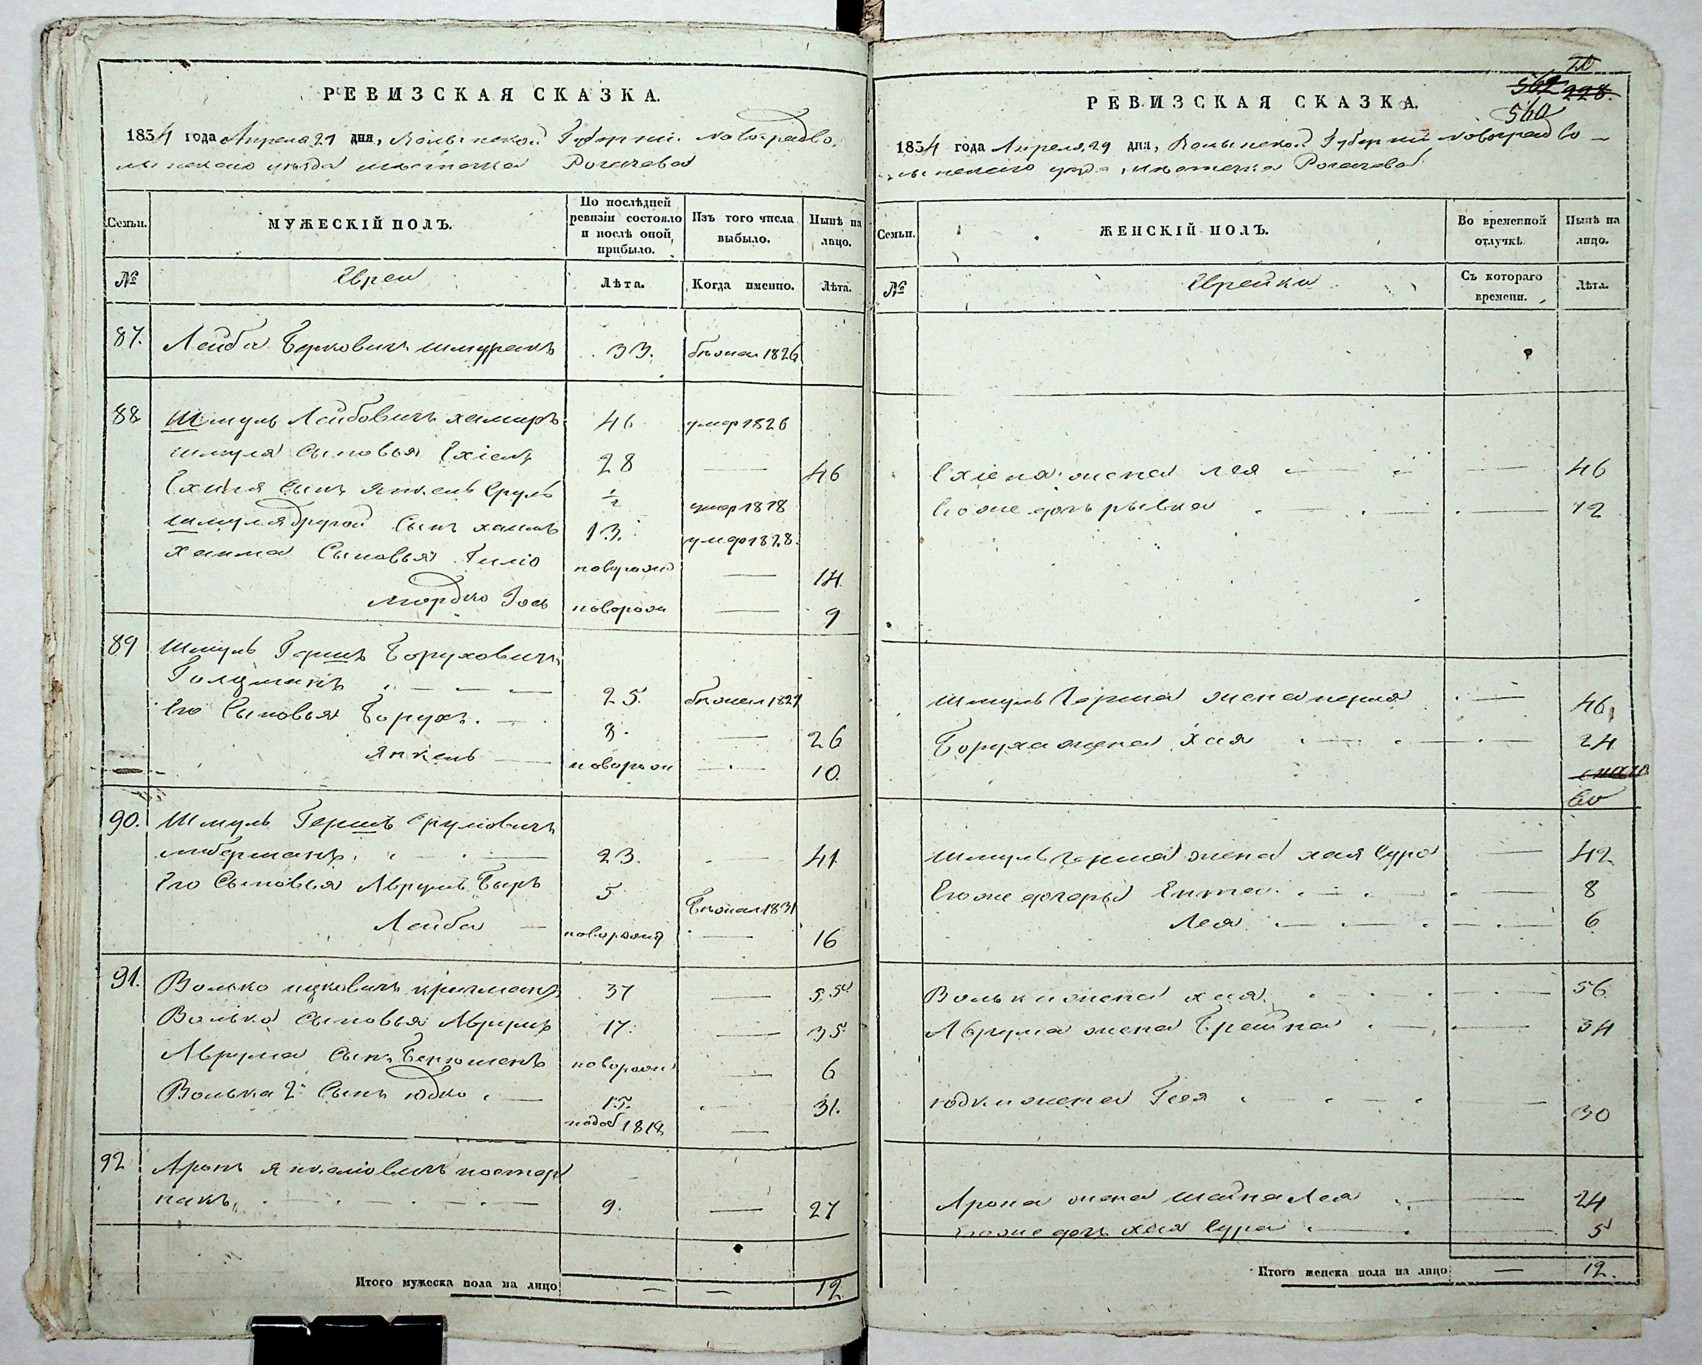 РЕВИЗСКАЯ СКАЗКА.
1834 года Апреля 29 дня, Волынской Губернии Новоградво
лынского уезда местечка Рогачева
Семьи.
МУЖЕСКІЙ ПОЛЪ.
По послѣдней ревизіи состояло и послѣ оной прибыло.
Изъ того числа выбыло.
Нынѣ на лицо.
№
Евреи
Лѣта.
Когда именно.
Лѣта.
87. Лейба Берковичъ 33. бежал 1826
88 Шмуль Лейбовичъ 46 умер 1826
Шмуля Сыновья Ехіель 28 — 46
Ехиля Сынъ Янкель Сруль ½ умер 1828
Шмуля другой Сынъ Хаимъ 13. умер 1828.
Хаима Сыновья новорож — 14.
Мордко новорож — 9
89 Шмуль Гершъ Боруховичъ
25. бежал 1827
Его Сыновья Борухъ. 8. — 26
Янкель — новорож — 10.
90. Шмуль Гершъ Срулювичъ
Либерманъ. 23. — 41
Его Сыновья Аврумъ Беръ 5 Бежал 1831
Лейба — новорожд — 16
91. Волько Ицковичъ 37 — 55
Волько Сыновья Аврумъ 17. — 35
Аврума Сынъ новорож — 6
Волька 2й Сынъ Юдко 31.
1818 —
92 Аронъ Янкелювичъ Пастер
накъ. 9. — 27
Итого мужеска пола на лицо — — 12
20
562 228.
560
РЕВИЗСКАЯ СКАЗКА.
1834 года Апреля 29 дня, Волынской Губернии Новоградво—
лынского уезда, местечка Рогачева
Семьи.
ЖЕНСКІЙ ПОЛЪ.
Во временной отлучкѣ.
Нынѣ на лицо.
№
Еврейки
Съ котораго времени.
Лѣта.
Ехіеля жена Лея — 46
Его же дочь Рывка — 12
Шмуль Герша жена Перля — 46
Боруха жена Хая — 24
Шмуль Герша жена Хая Сура — 42
Его же дочеры Ента — 8
Лея — 6
Вольки жена Хая — 56
Аврума жена Брейна — 34
Юдки жена — 30
Арона жена Шейна Лея — 24
Его же дочь Хая Сура 5
Итого женска пола на лицо — 12.